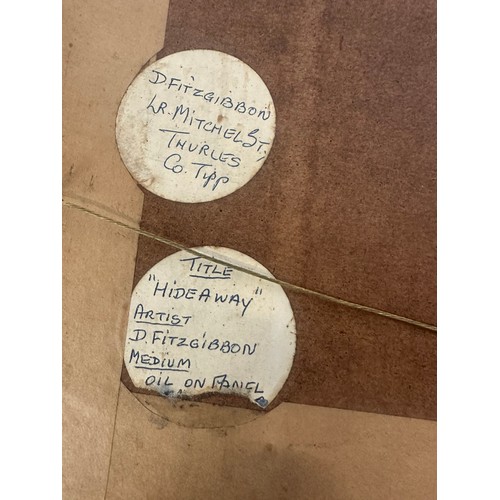 D. FITZGIBBON
LR. MITCHEL ST.,
THURLES
CO. TIPP
TITLE
"HIDEAWAY"
ARTIST
D. FITZGIBBON
MEDIUM
OIL ON PANEL